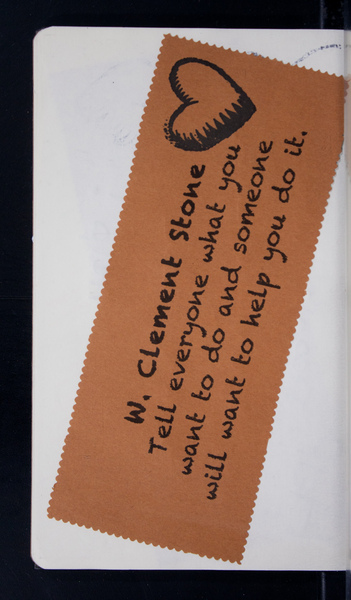 W. Clement Stone
Tell everyone what you
want to do and someone
will want to help you do it.